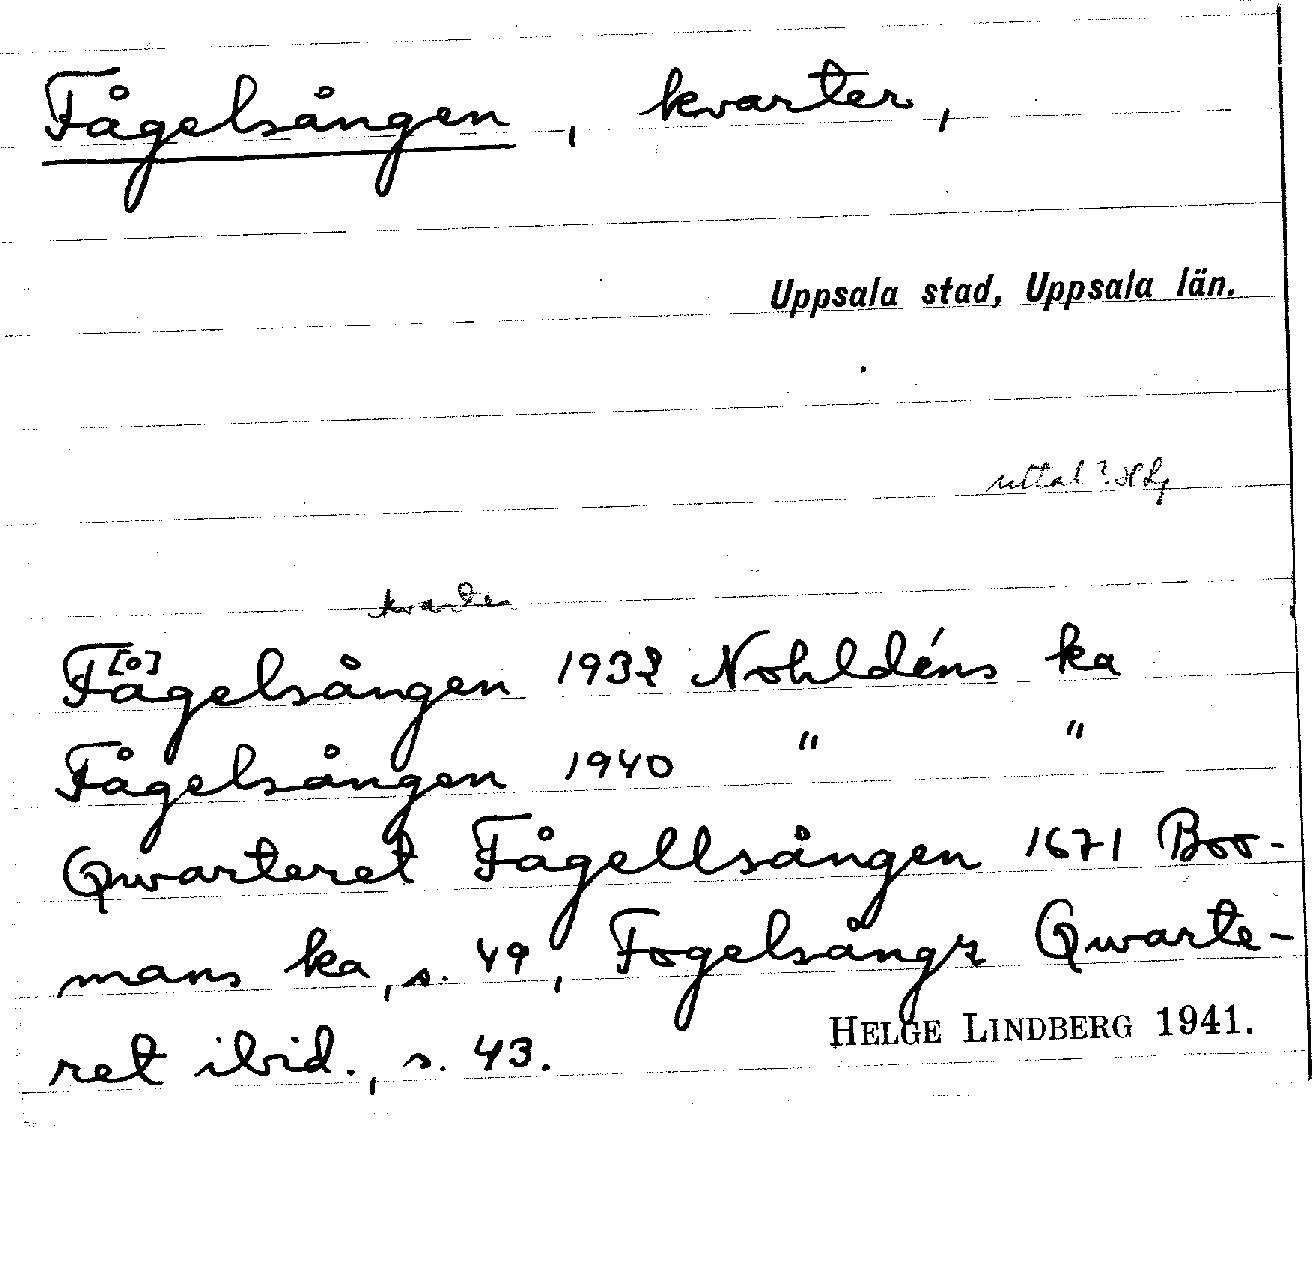 Fågelsången, kvarter,
Uppsala stad, Uppsala län.
uttal?
kvarter
F[å]gelsången 1932 Nohldéns ka
Fågelsången 1940 " "
Qwarteret Fågellsången 1671 Boo-
mans ka, s. 49, Fogelsångz Qwarte-
ret ibid., s. 43.
HELGE LINDBERG 1941.